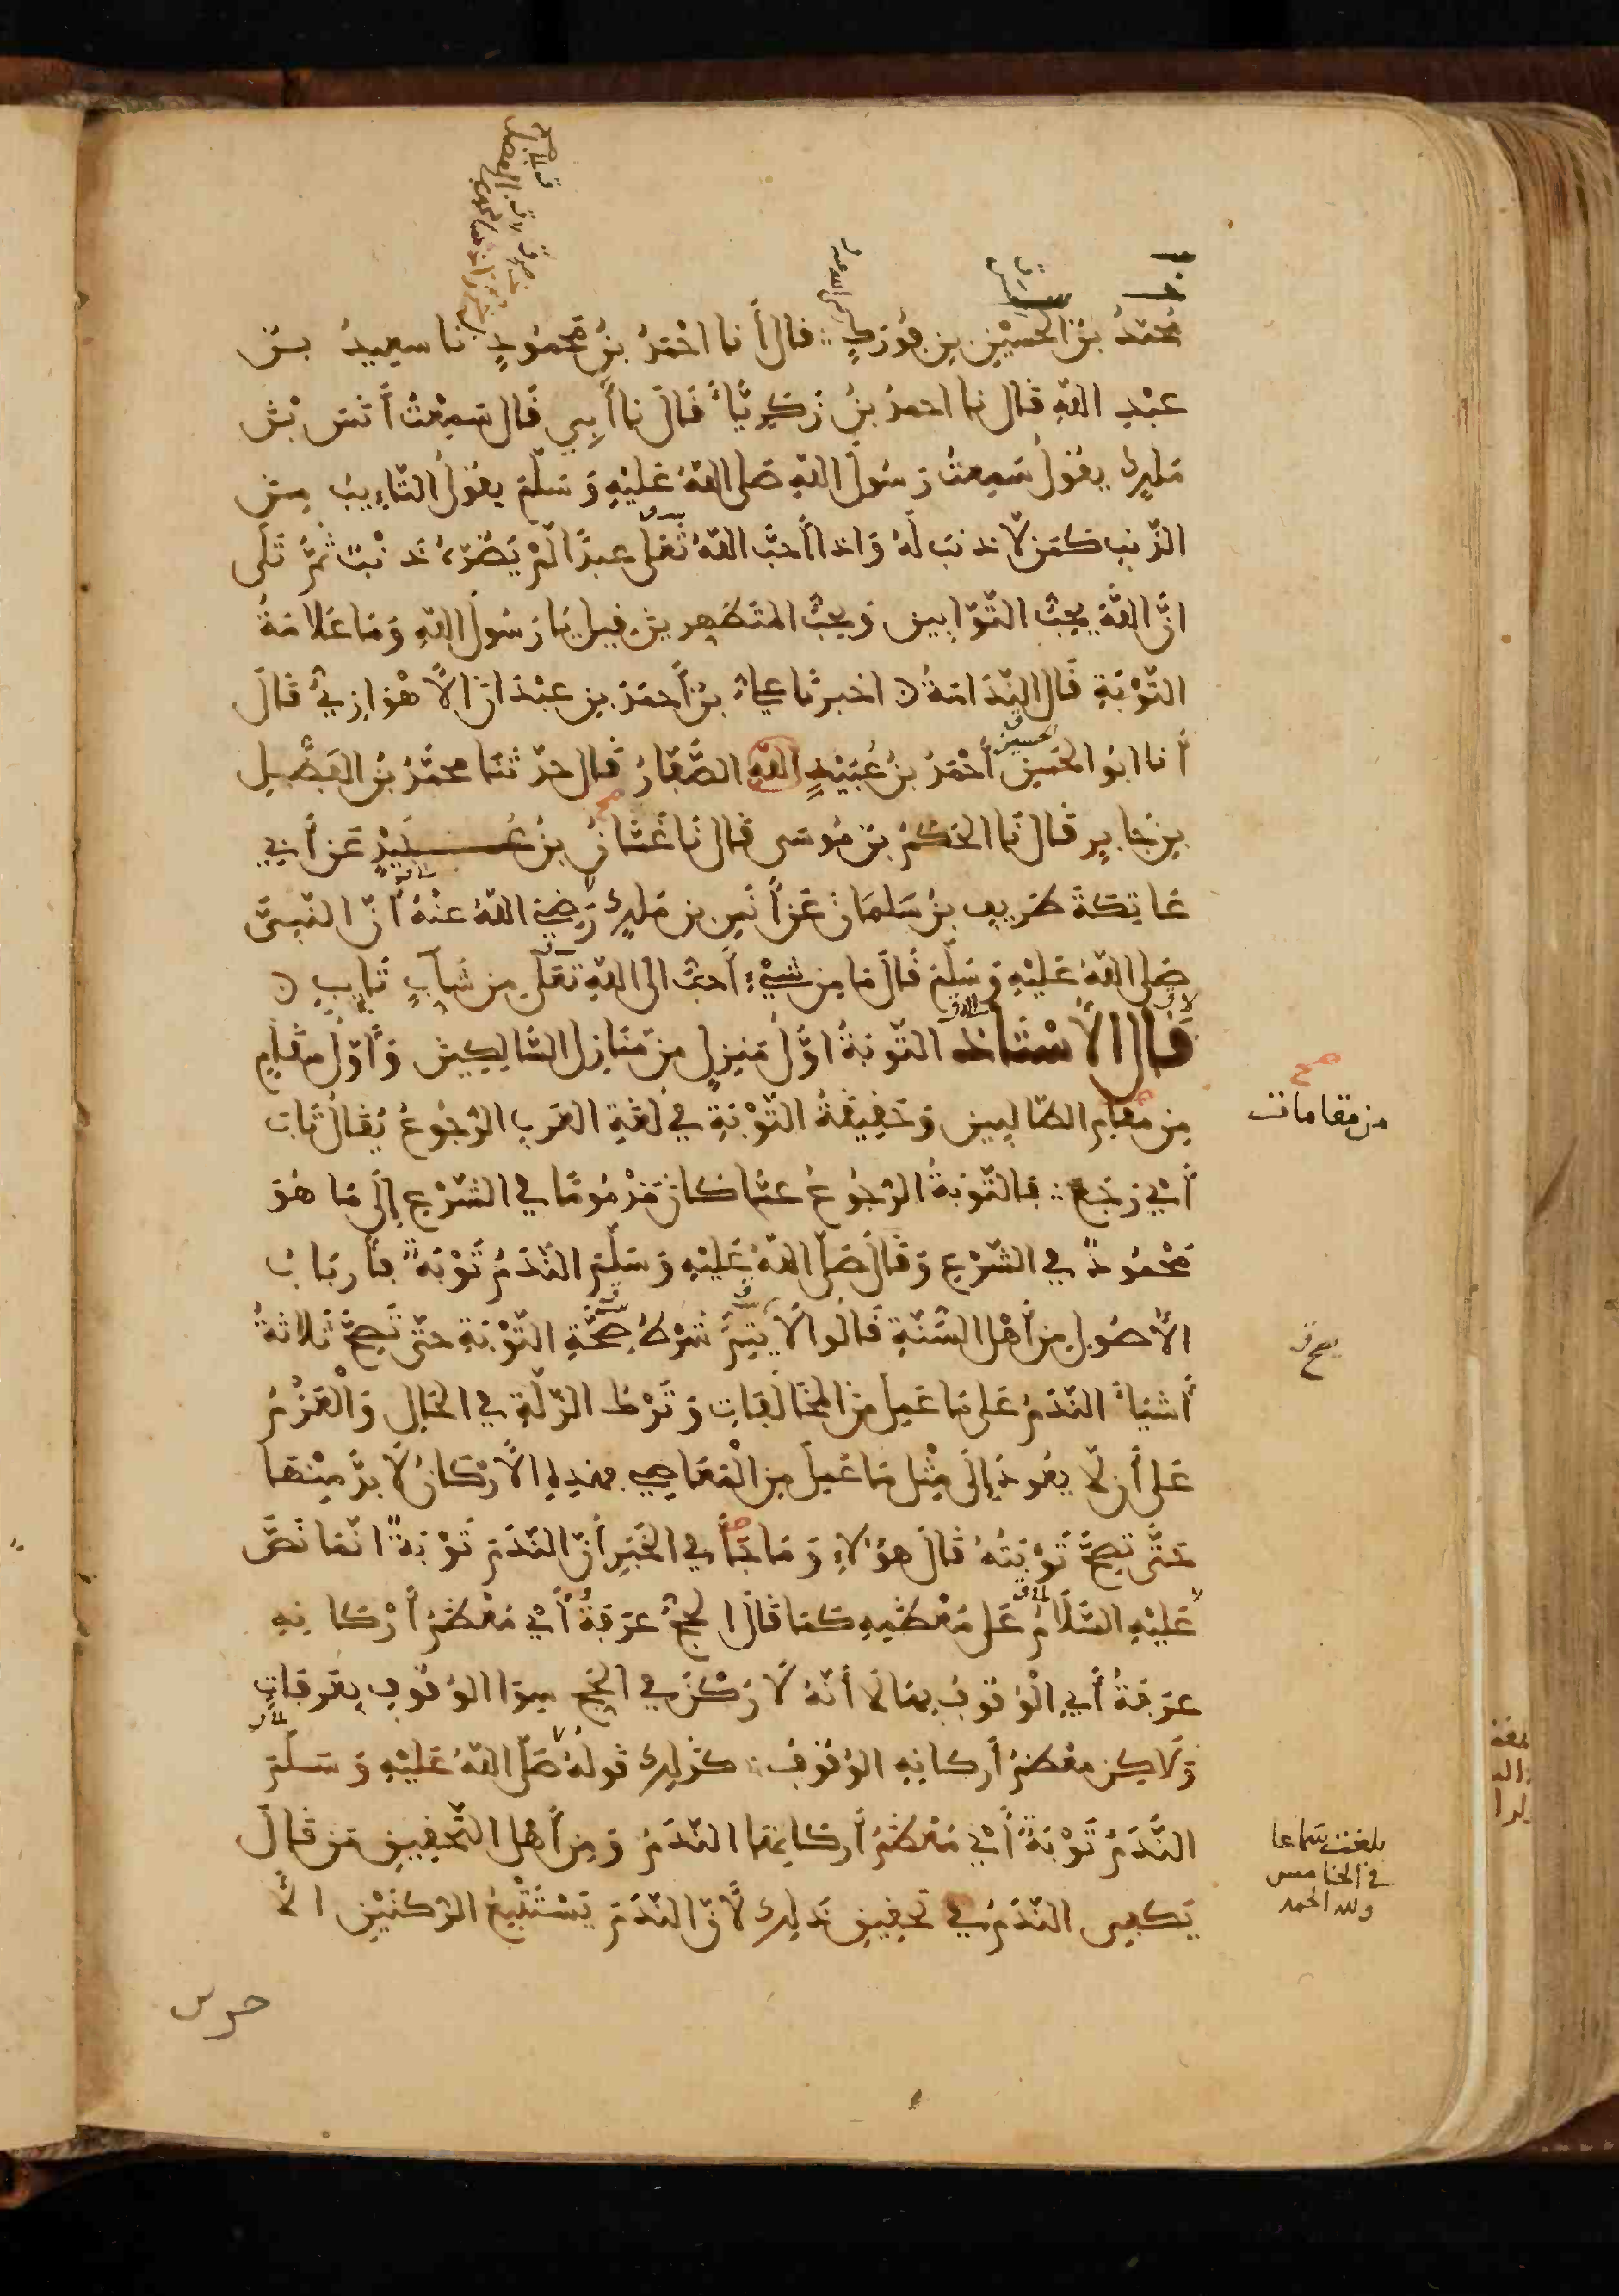 محمّدُ بنُ الحسَيْنِ بنِ فُورَكٍ قال أنا احْمَدُ بنُ محمُودٍ نا سعِيدُ بنُ
عبْدِ اللّهِ قال نا احمدُ بنُ زكرِيّاءَ قالَ نا أَبِي قَال سَمِعْتُ أنَس بْنَ
مَلِكٍ يقُولُ سَمِعتُ رَسُولَ اللّهِ صَلى اللّهُ عَليْهِ وَسَلّمَ يقُولُ التّاءِيبُ مِنَ
الذّنبِ كمَن لّا ذنبَ لَهُ وَاذا أحبَّ اللّهُ تَعَلَى عبدًا لّمْ يَضُرّهُ ذنْبٌ ثمَّ تَلَى
انَّ اللّهَ يحِبُّ التّوّابِينَ وَيحبُّ المتَطهِرِينَ فيلَ يَا رَسُولَ اللّهِ وَمَا عَلامَةُ
التّوْبَةِ قَال النّدَامَةُ اخبرنَا عليُّ بنُ أحمَدَ بنِ عبْدَانَ الأهْوَازِيُّ قالَ
أنا ابُو الحسَينِ أحْمَدُ بنُ عُبَيْدٍ اللّهِ الصَّفّارُ قَال حدّثنَا محمَّدُ بنُ الفَضْلِ
بنِ جَابِرٍ قَال نَا الحَكَمُ بنُ مُوسَى قَال نَا غَسّانُ بنُ عُبَيْدٍ عَن أَبِي
عَاتِكَةَ طَرِيفِ بنِ سَلمَانَ عَن أنَسِ بنِ مَلِكٍ رَضِيَ اللّهُ عنْهُ أنّ النّبِىَّ
صَلى اللّهُ عَليْهِ وَسَلّمَ قَالَ مَا مِن شَيْءٍ أحبَّ الى اللّهِ تَعَلَى مِن شَآبٍّ تَايِبٍ
قَالَ الأُسْتَاذ التّوبَةُ اوّلُ مَنزِلٍ مِن مَّنَازِلِ السّالِكِينَ وَأوّلُ مقَامٍ
مِن مقَامِ الطّالِبِينَ وَحَقِيقَةُ التَّوْبَةِ فِي لُغَةِ العَرَبِ الرُجُوعُ يُقَالُ تَابَ
أَيْ رَجَعَ فالتّوبَةُ الرّجُوعُ عمّا كانَ مَذْمُومًا فِي الشّرْعِ إلَى مَا هُوَ
مَحْمُودٌ فِي الشّرْعِ وَقَالَ صَلّى اللّهُ عَليْهِ وَسَلّمَ النّدَمُ تَوْبَةٌ فأربَابُ
الأُصُولِ مِن أهْلِ السُّنّةِ قَالُوا لَا يَتِمُّ شَرْطُ صِحَّةِ التّوْبَةِ حتّى تَصِحَّ ثَلاثةُ
أشيَاءَ النّدَمُ عَلَى مَا عَمِلَ مِنَ المخَالَفَاتِ وَتَرْكُ الزّلّةِ فِي الحَالِ وَالْعَزْمُ
عَلَى أن لّا يعُودَ إلَى مِثْلِ مَا عَمِلَ مِن الْمَعَاصِي فهذِهِ الأرْكَانُ لَا بدَّ مِنْهَا
حَتَّى تصِحَّ تَوْبَتُهُ قالَ هؤُلاءِ وَمَا جَاءَ فِي الخَبَرِ أنّ النّدَمَ تَوْبَةٌ انّمَا نَصَّ
عَلَيْهِ السّلَامُ عَلى مُعْظَمِهِ كمَا قَالَ الحجُّ عرَفَةُ أيْ مُعْظَمُ أرْكَانِهِ
عرَفَةُ أي الْوُقُوفُ بِهَا لَا أنّهُ لَا رُكْنَ فِي الحَجِّ سِوَا الوُقُوفِ بِعَرَفَاتٍ
وَلَاكِن معْظمُ أركانِهِ الوُقُوفُ كذَلِكَ قولُهُ صَلّى اللّهُ عَليْهِ وَسَلّمَ
النَّدَمُ تَوْبَةٌ أيْ مُعْظَمُ أركانِهَا النّدَمُ وَمِن أهْلِ التّحقِيقِ مَن قَالَ
يَكفِى النّدَمُ فِي تحقِيقِ ذَلِكَ لأنّ النّدَمَ يَسْتَتْبِعُ الرّكنَيْنِ الأ
صح
من مقامات
صح ق
بلغت سماعا
في الخامس
ولله الحمد